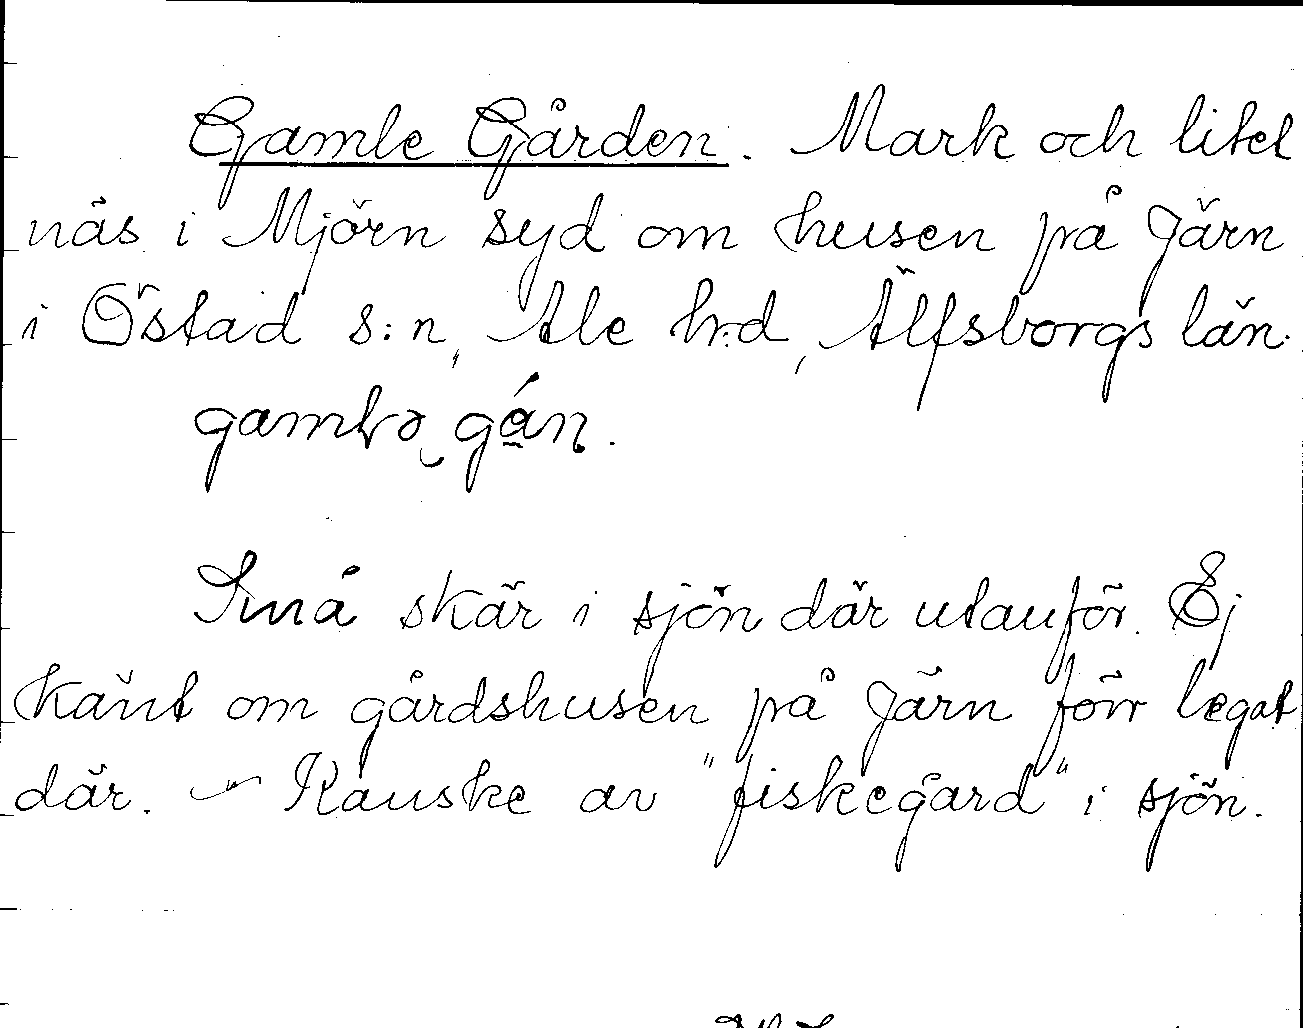 Gamle Gården. Mark och litet
näs i Mjörn syd om husen på Järn
i Östad s:n, Ale h:d, Älfsborgs län.
gamlə gán.
Små skär i sjön där utanför. Ej
känt om gårdshusen på Järn förr legat
där. – Kanske av "fiskegård" i sjön.